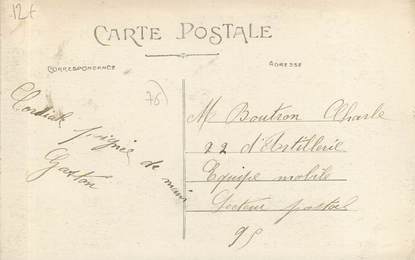 12f
CARTE POSTALE
CORRESPONDANCE
ADRESSE
78
Cordiale
poignée de main
Gaston
M Boutron Charle
22 d'Artillerie
Equipe mobile
Secteur postal
95